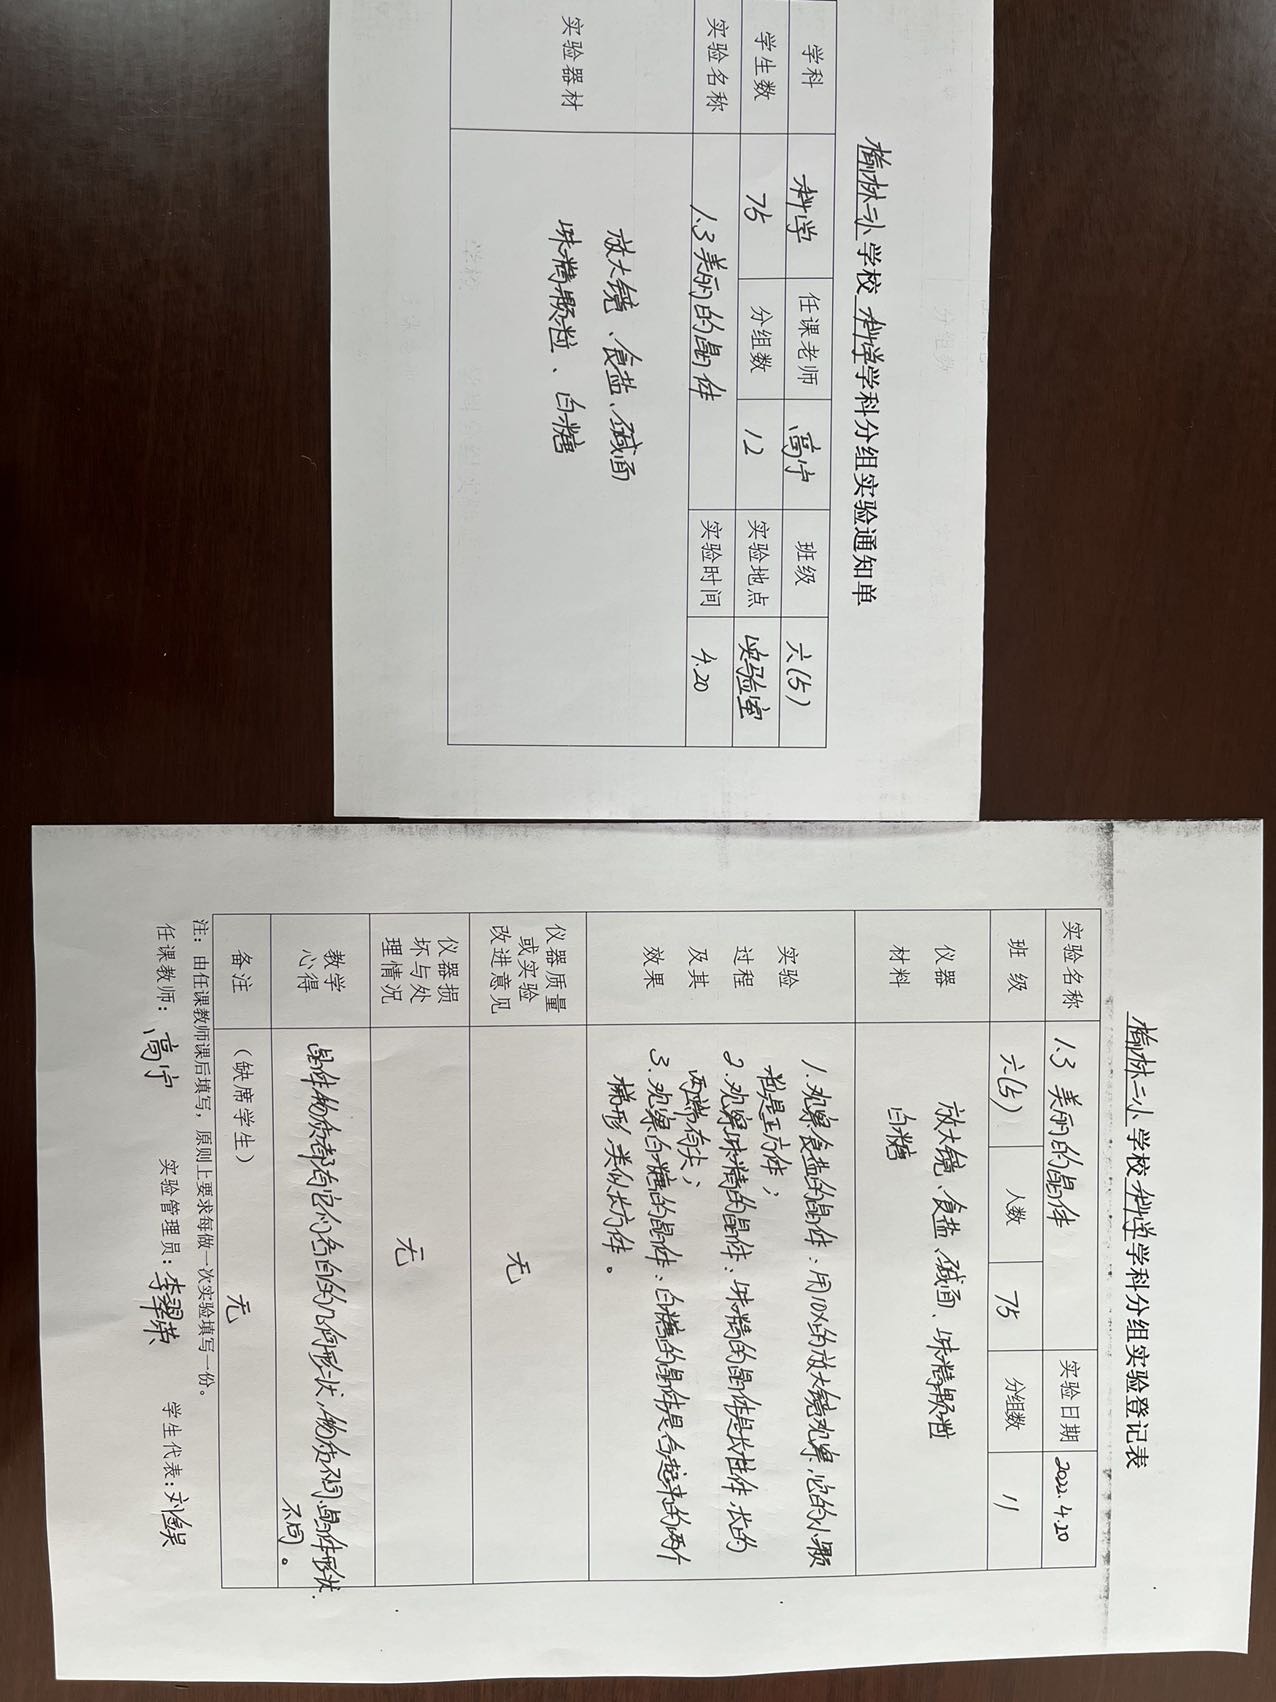 榆林二小学校科学学科分组实验通知单
学科 科学 任课老师 高宁 班级 六(5)
学生数 75 分组数 12 实验地点 实验室
实验名称 1.3美丽的晶体 实验时间 4.20
实验器材
放大镜、食盐、碱面
味精颗粒、白糖
榆林二小学校科学学科分组实验登记表
实验名称 1.3 美丽的晶体 实验日期 2022.4.20
班级 六(5) 人数 75 分组数 11
仪器
材料
放大镜、食盐、碱面、味精颗粒
白糖
实验
过程
及其
效果
1.观察食盐的晶体:用10X的放大镜观察,它的小颗
粒是正方体;
2.观察味精的晶体:味精的晶体是长柱体,长的
两端有尖;
3.观察白糖的晶体:白糖的晶体是合起来的两个
梯形,类似长方体。
仪器质量
或实验
改进意见
无
仪器损
坏与处
理情况
无
教学
心得
晶体物质都有它们各自的几何形状,物质不同晶体形状
不同。
备注 (缺席学生) 无
注:由任课教师课后填写,原则上要求每做一次实验填写一份。
任课教师:高宁 实验管理员:李翠荣 学生代表:刘